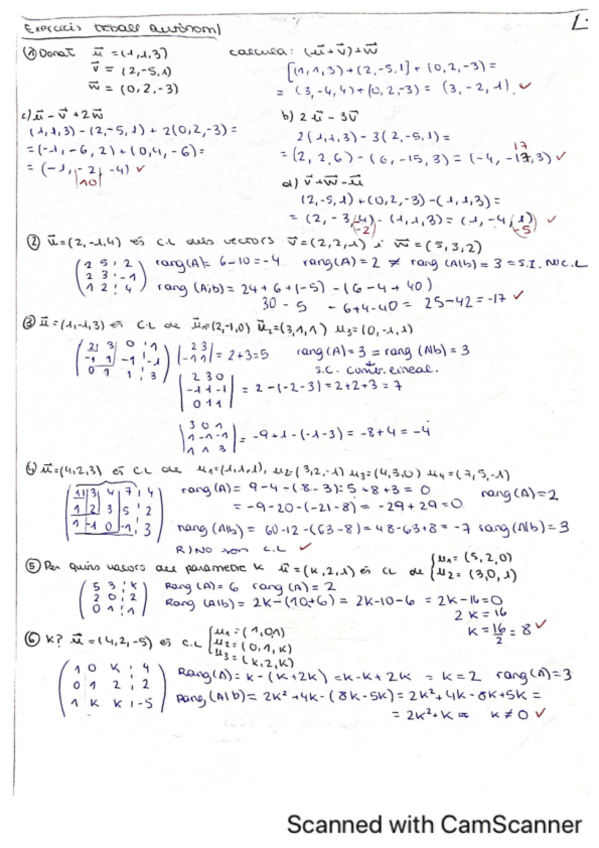 Exercicis treball autònom 1
① Donat u⃗ = (1,1,3)
v⃗ = (2,-5,1)
w⃗ = (0,2,-3)
calcula: (u⃗+v⃗)+w⃗
[(1,1,3)+(2,-5,1]+(0,2,-3)=
= (3,-4,4)+(0,2,-3) = (3,-2,1). ✓
c) u⃗-v⃗+2w⃗
(1,1,3)-(2,-5,1)+2(0,2,-3)=
=(-1,-6,2)+(0,4,-6)=
= (-1, -2, -4) ✓
10
b) 2u⃗-3v⃗
2(1,1,3)-3(2,-5,1)=
=(2,2,6)-(6,-15,3)=(-4,-17,3) ✓
17
d) v⃗+w⃗-u⃗
(2,-5,1)+(0,2,-3)-(1,1,3)=
= (2,-3,4)-(1,1,3)=(1,-4,1) ✓
-2 -5
② u⃗=(2,-1,4) és C.L dels vectors v⃗=(2,2,1) i w⃗=(5,3,2)
2 5 2
2 3 -1
1 2 4
rang(A)= 6-10=-4 rang(A)=2 ≠ rang(A|b)=3=S.I. NO C.L
rang (A|b)= 24+6+(-5)-(6-4+40)
30 - 5 - 6+4-40= 25-42=-17 ✓
③ u⃗=(1,-1,3) és C.L de u1=(2,-1,0) u⃗2=(3,1,1) u3=(0,-1,1)
2 3 0 1
-1 1 -1 -1
0 1 1 3
|2 3
-1 1| = 2+3=5 rang(A)=3 = rang(A|b)=3
|2 3 0
-1 1 -1
0 1 1| = 2-(-2-3)=2+2+3=7
|3 0 1
1 -1 -1
1 1 3| = -9+1-(-1-3)= -8+4=-4
④ u⃗=(4,2,3) és C.L de u1=(1,1,1), u2=(3,2,-1) u3=(4,3,0) u4=(7,5,-1)
1 3 4 7 4
1 2 3 5 2
1 -1 0 -1 3
rang(A)= 9-4-(8-3)=5-8+3=0 rang(A)=2
= -9-20-(-21-8)= -29+29=0
rang(A|b)= 60-12-(63-8)=48-63+8=-7 rang(A|b)=3
R) NO són C.L ✓
⑤ Per quins valors del parametre K u⃗=(K,2,1) és CL de u1=(5,2,0)
u2=(3,0,1)
5 3 K
2 0 2
0 1 1
Rang(A)=6 rang(A)=2
Rang(A|b)= 2K-(10+6)= 2K-10-6 = 2K-16=0
2K=16
K=16/2=8 ✓
⑥ K? u⃗=(4,2,-5) és C.L u1=(1,0,1)
u2=(0,1,K)
u3=(K,2,K)
1 0 K 4
0 1 2 2
1 K K -5
Rang(A)= K-(K+2K) =K-K+2K = K=2 rang(A)=3
Rang(A|b)= 2K²+4K-(8K-5K)=2K²+4K-8K+5K=
= 2K²+K = K≠0 ✓
Scanned with CamScanner